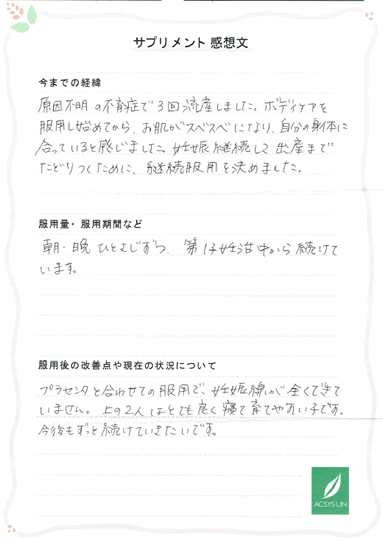 サプリメント 感想文
今までの経緯
原因不明の不育症で3回流産しました。ボディケアを
服用し始めてから、お肌がスベスベになり、自分の身体に
合っていると感じました。妊娠継続して出産まで
たどりつくために、継続服用を決めました。
服用量・服用期間など
朝・晩 ひとさじずつ、第1子妊活中から続けて
います。
服用後の改善点や現在の状況について
プラセンタと合わせての服用で、妊娠線が全くできて
いません。上の2人はとても良く寝て育てやすい子です。
今後もずっと続けていきたいです。
ACSYS UN